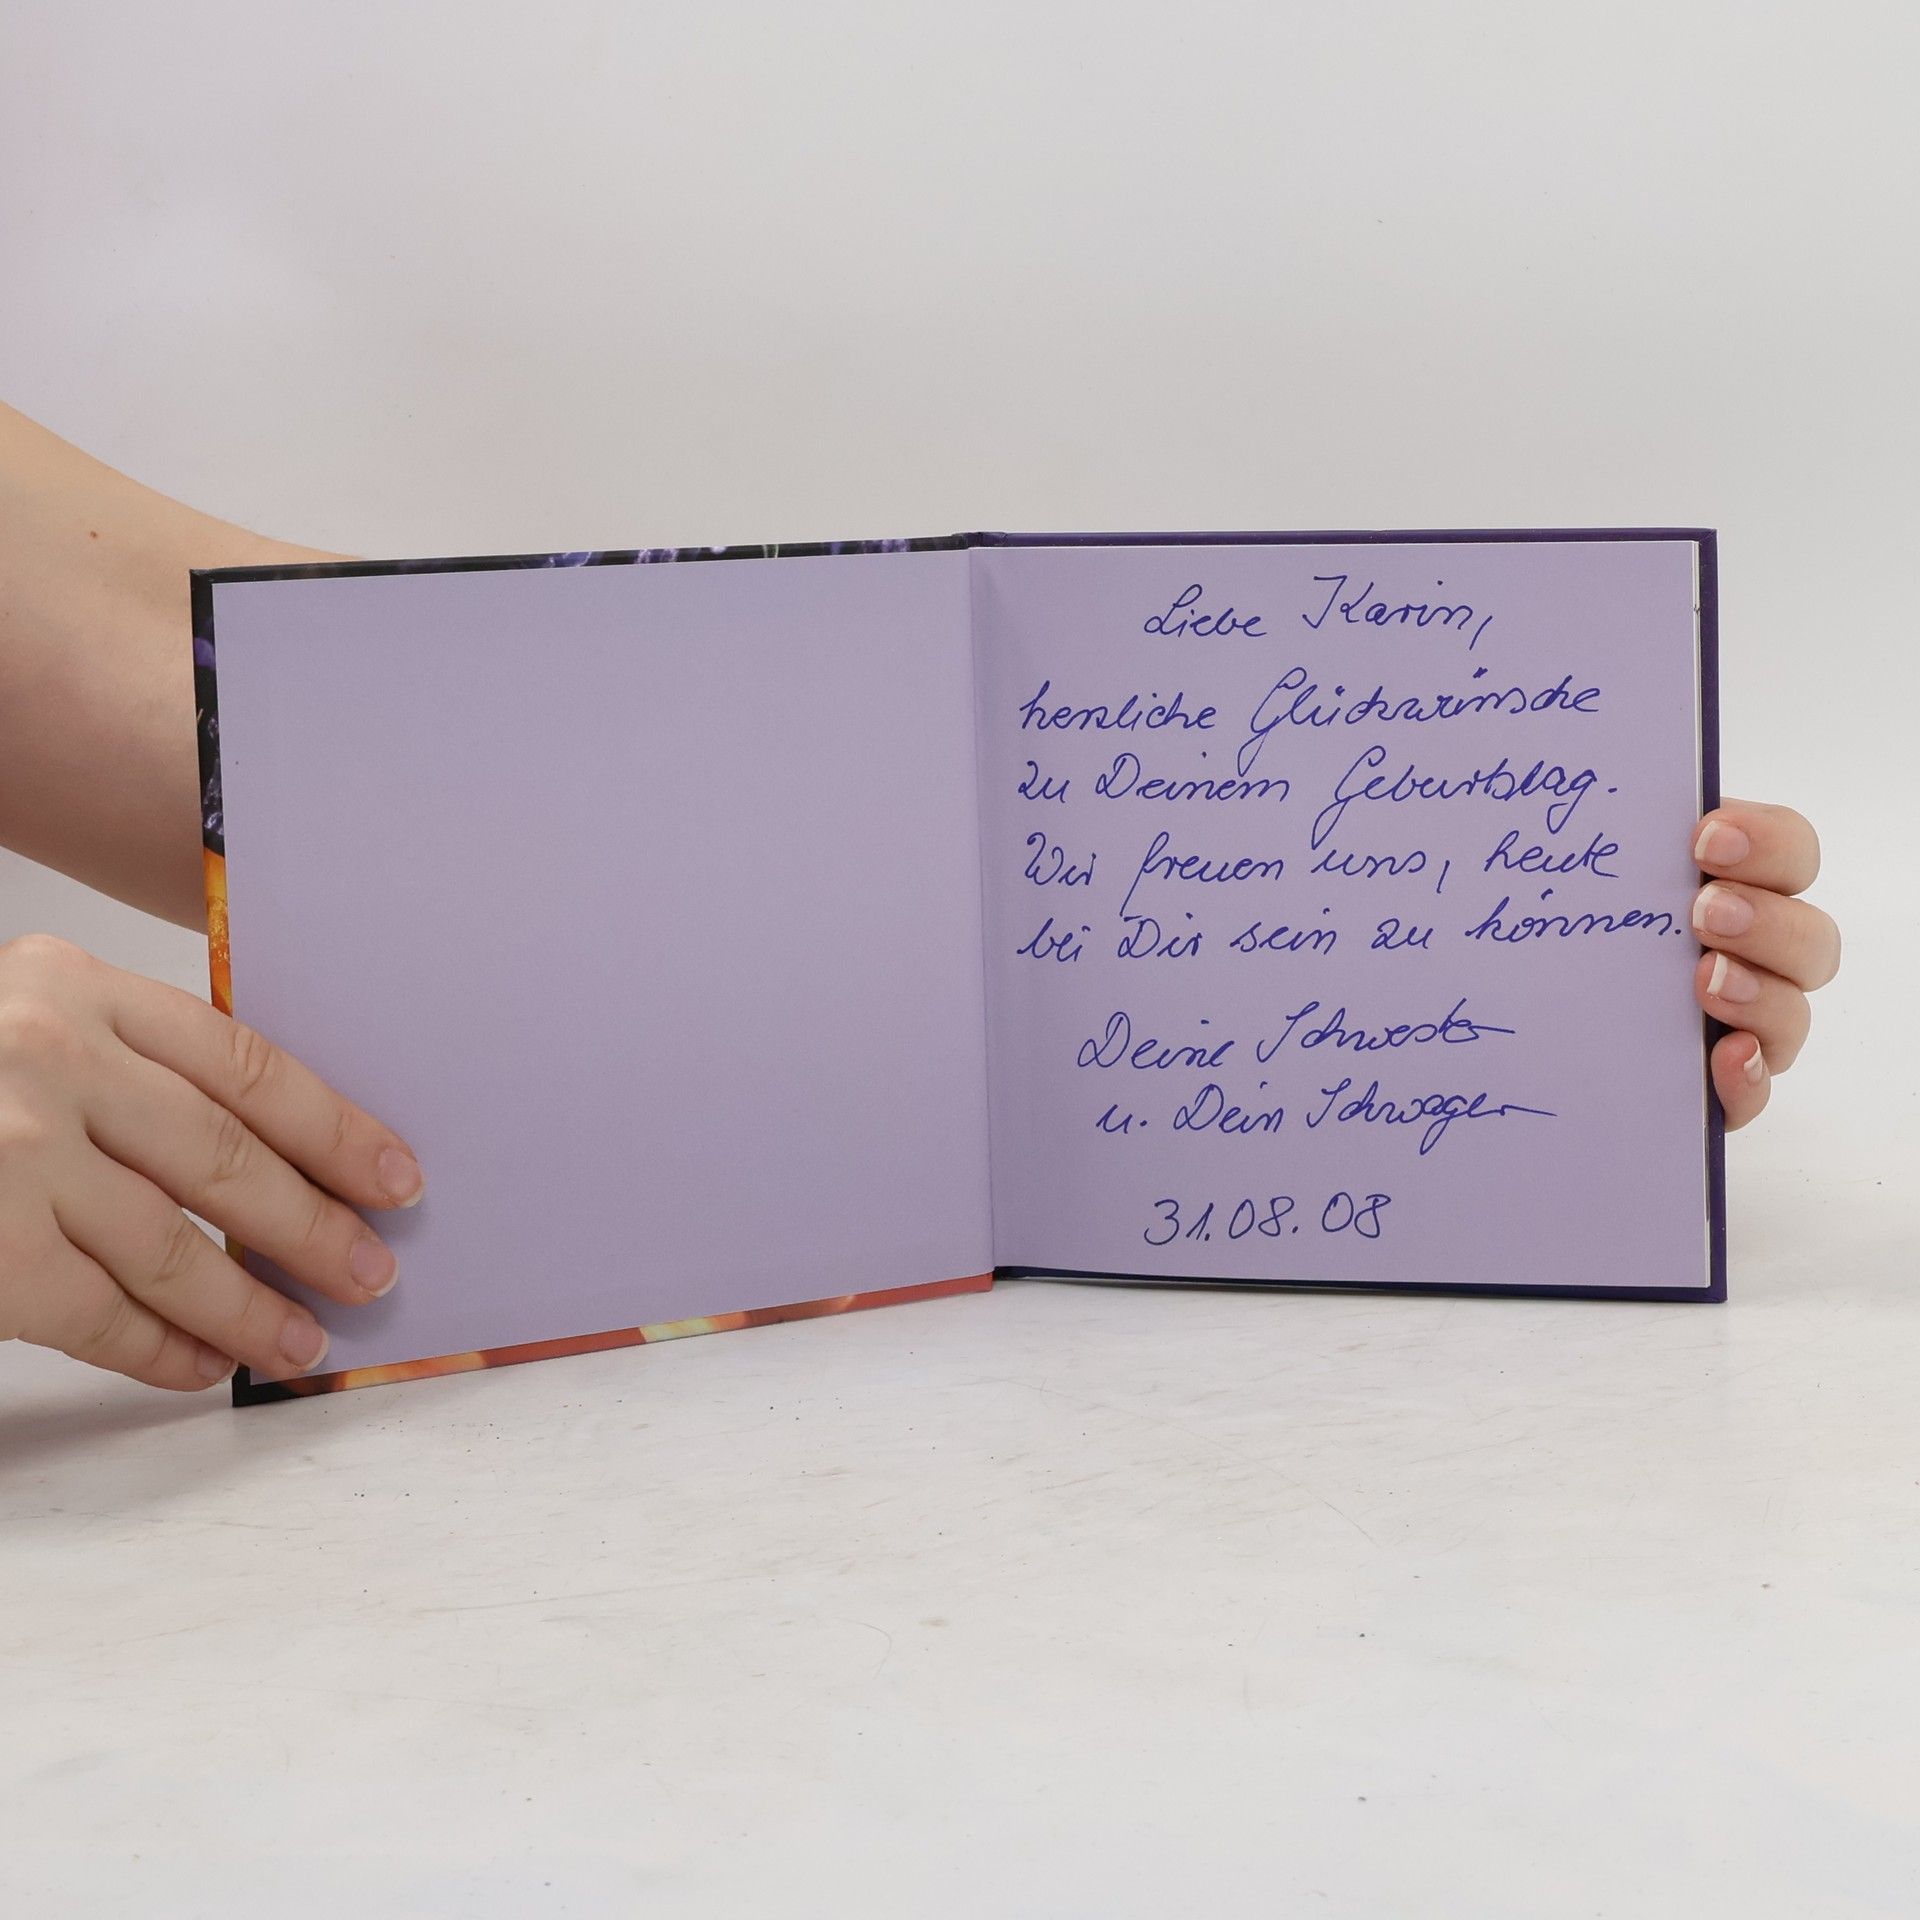 Liebe Karin,
herzliche Glückwünsche
zu Deinem Geburtstag.
Wir freuen uns, heute
bei Dir sein zu können.
Deine Schwester
u. Dein Schwager
31.08.08